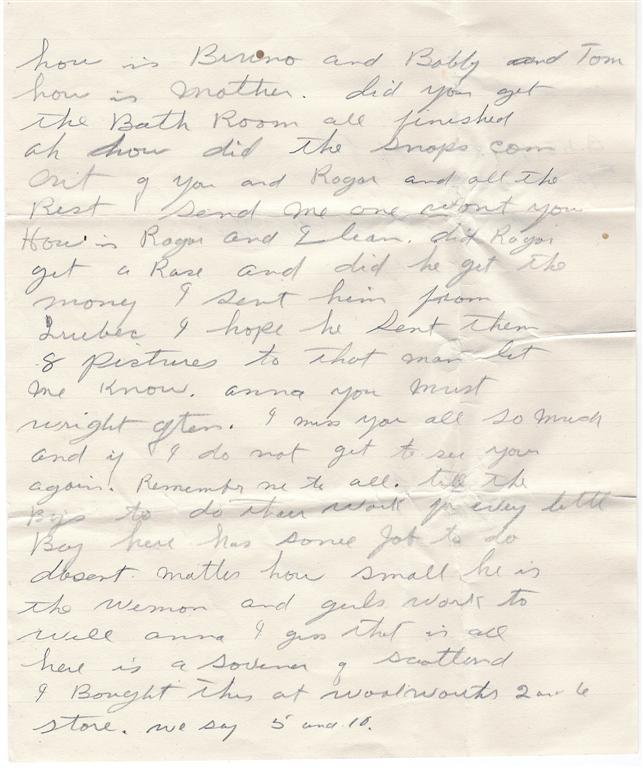 how is Bruno and Bobby and Tom
how is Mother. did you get
the Bath Room all finished
ah how did the snaps com
Out of you and Rogar and all the
Rest send me one wont you
How is Rogar and Elean. did Rogar
get a Rase and did he get the
money I sent him from
Qruebec I hope he sent them
8 pictures to that man let
me know. anna you must
wright often. I miss you all so much
and if I do not get to see you
again. Remember me to all. tell the
Boys to do their work for every little
Boy here has some Job to do
dosent matter how small he is
the wemon and girls work to
well anna I gess that is all
here is a sovener of scottland
I Bought this at woolworths 2 and 6
store. we say 5 and 10.